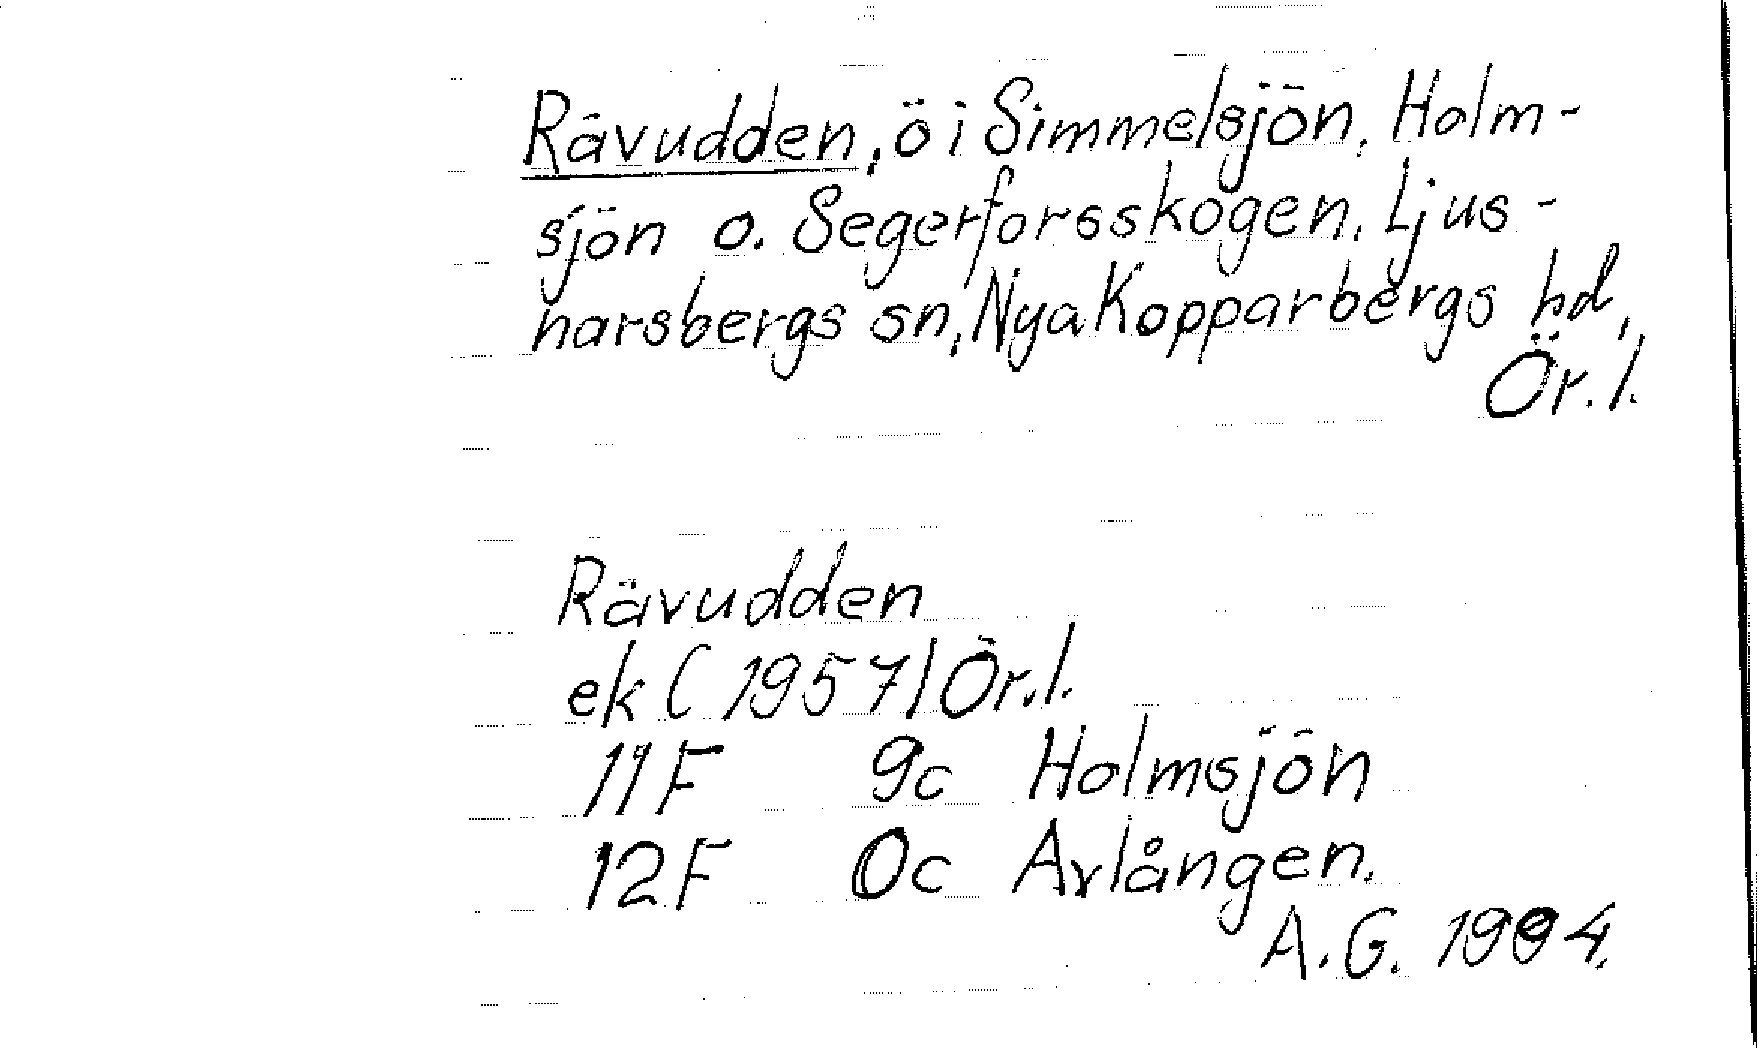 Rävudden, ö i Simmelsjön, Holm-
sjön o. Segerforsskogen, Ljus-
narsbergs sn, Nya Kopparbergs hd,
Ör. l.
Rävudden
ek (1957) Ör. l.
11F 9c Holmsjön
12F 0c Arlången.
A. G. 1994.